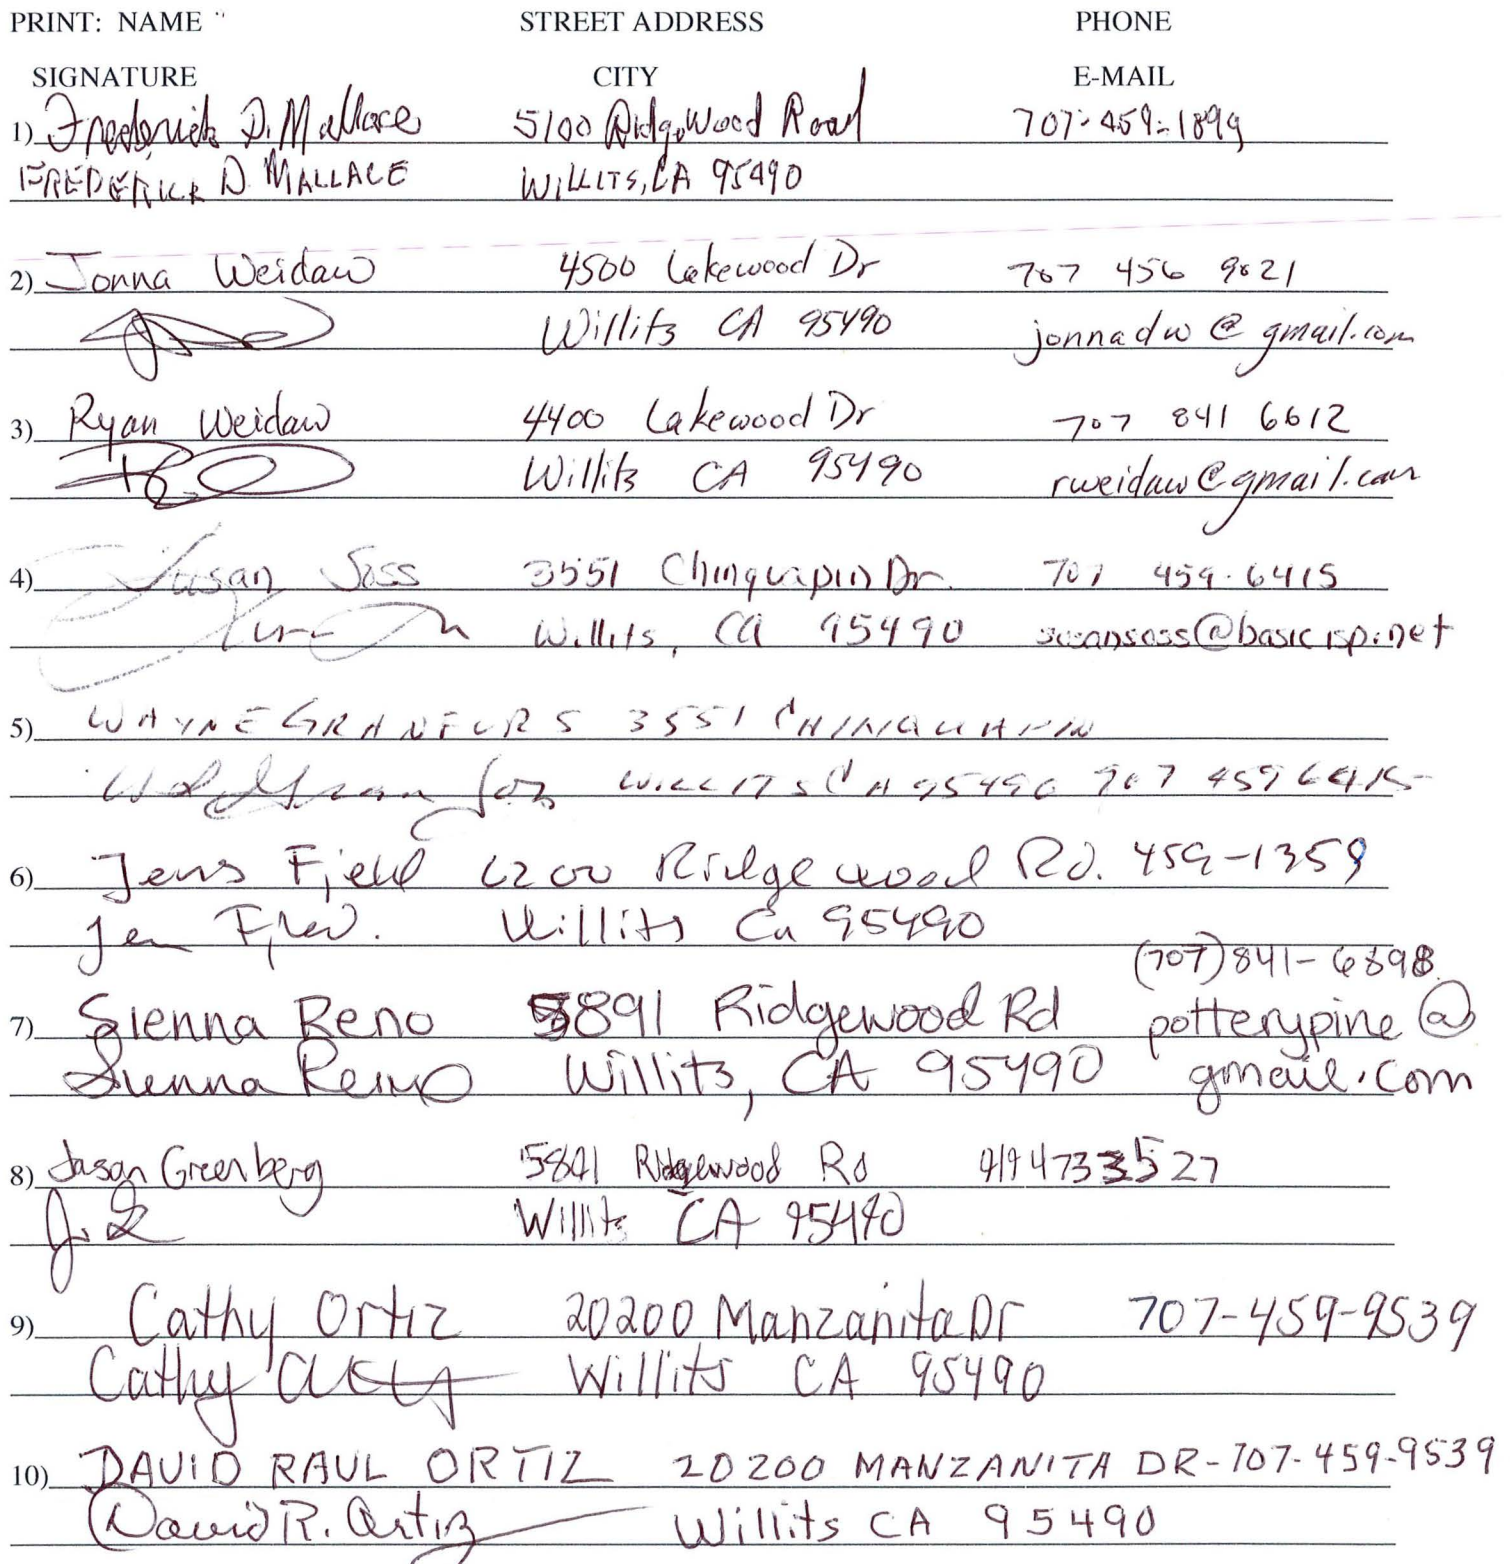 PRINT: NAME STREET ADDRESS PHONE
SIGNATURE CITY E-MAIL
1) Frederick D. Mallace 5100 Ridgewood Road 707-459-1899
FREDERICK D. MALLACE WILLITS, CA 95490
2) Jonna Weidaw 4500 Lakewood Dr 707 456 9021
Willits CA 95490 jonnadw@gmail.com
3) Ryan Weidaw 4400 Lakewood Dr 707 841 6612
Willits CA 95490 rweidaw@gmail.com
4) Susan Soss 3551 Chinquapin Dr. 707 459-6415
Willits, CA 95490 susansoss@basicisp.net
5) WAYNE 3551 CHINQUAPIN
WILLITS CA 95490 707 459 6415
6) Jens Fjeld 6200 Ridgewood Rd. 459-1359
Willits Ca 95490
(707)841-6898
7) Sienna Reno 5891 Ridgewood Rd potterypine@
Sienna Reno Willits, CA 95490 gmail.com
8) Jason Greenberg 5891 Ridgewood Rd 919 4733527
Willits CA 95490
9) Cathy Ortiz 20200 Manzanita Dr 707-459-9539
Cathy Willits CA 95490
10) DAVID RAUL ORTIZ 20200 MANZANITA DR-707-459-9539
David R. Ortiz Willits CA 95490